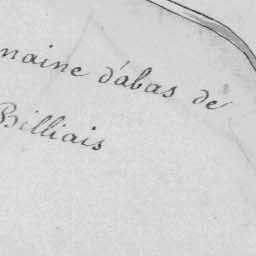 maine d'abas de
Billiais